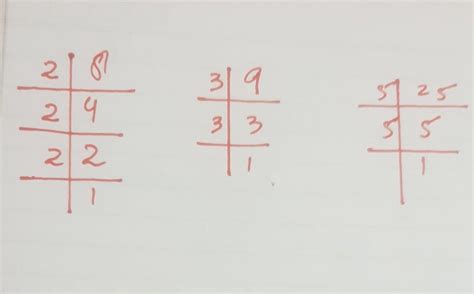 2 8
2 4
2 2
1
3 9
3 3
1
5 25
5 5
1